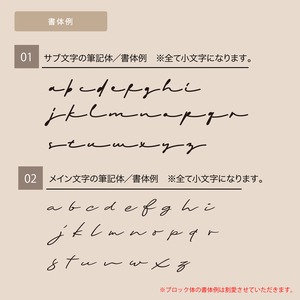 書体例
01 サブ文字の筆記体／書体例　※全て小文字になります。
a b c d e f g h i
j k l m n o p q r
s t u v w x y z
02 メイン文字の筆記体／書体例　※全て小文字になります。
a b c d e f g h i
j k l m n o p q r
s t u v w x z
※ブロック体の書体例は割愛させていただきます。